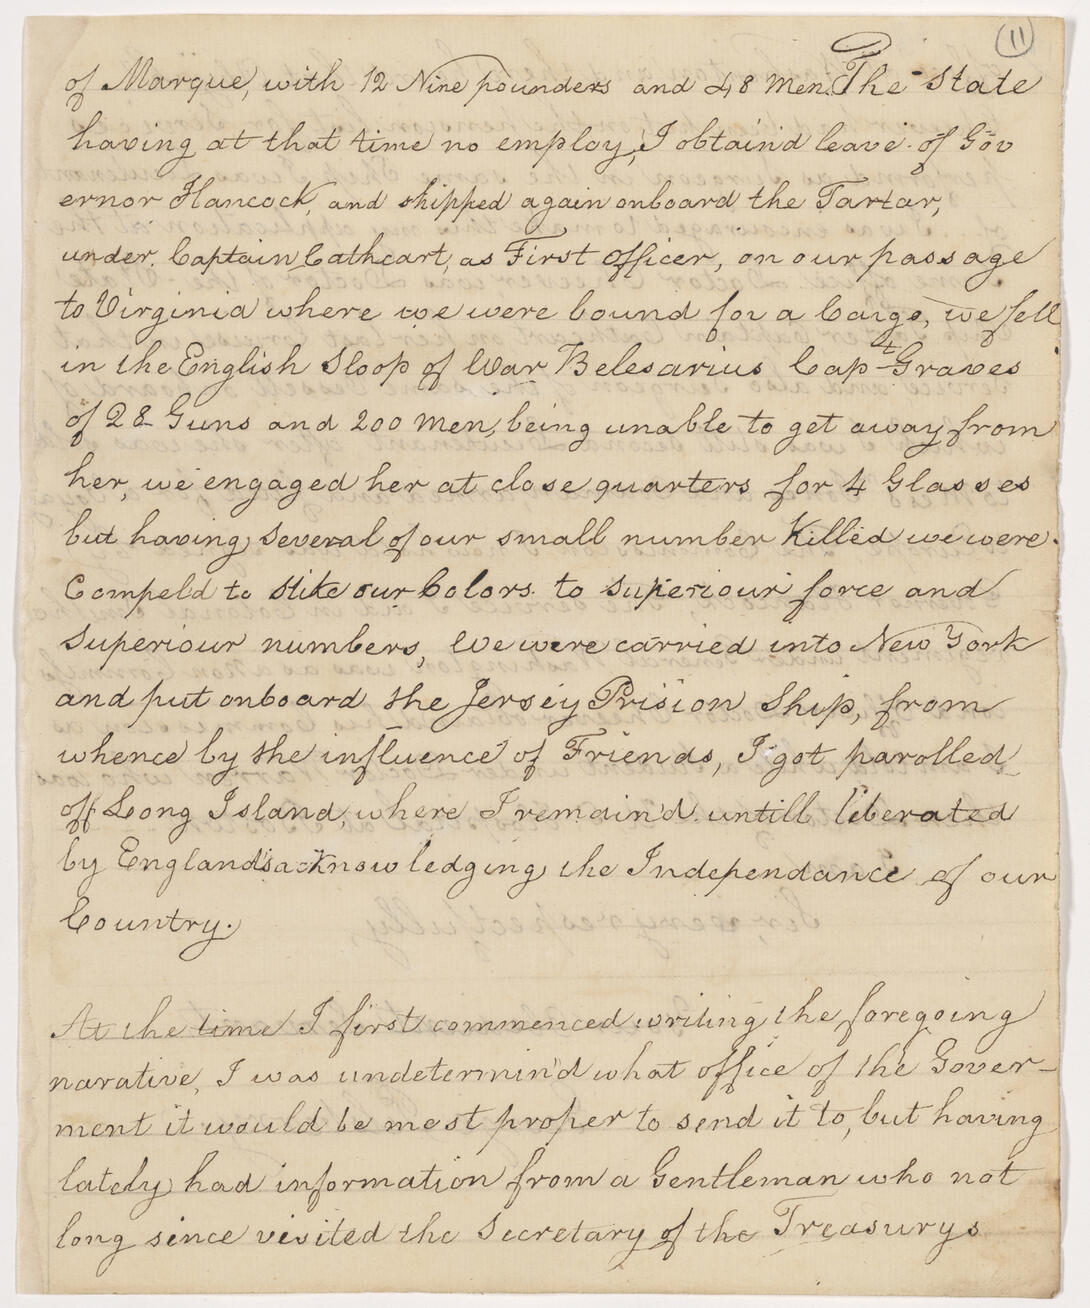 11
of Marque, with 12 Nine pounders and 48 Men. The State
having at that time no employ, I obtain'd leave of Gov
ernor Hancock, and shipped again onboard the Tartar,
under Captain Cathcart, as First officer, on our passage
to Virginia where we were bound for a Cargo, we fell
in the English Sloop of War Belesarius Capt Graves
of 28 Guns and 200 Men, being unable to get away from
her, we engaged her at close quarters for 4 Glasses
but having several of our small number Killed we were
Compeld to stike our Colors to superiour force and
superiour numbers, We were carried into New York
and put onboard the Jersey Prision Ship, from
whence by the influence of Friends, I got parolled
off Long Island, where I remain'd untill liberated
by England's acknowledging the Independance of our
Country.
At the time I first commenced writing the foregoing
narative, I was undetermin'd what office of the Gover-
ment it would be most proper to send it to, but having
lately had information from a Gentleman who not
long since visited the Secretary of the Treasurys